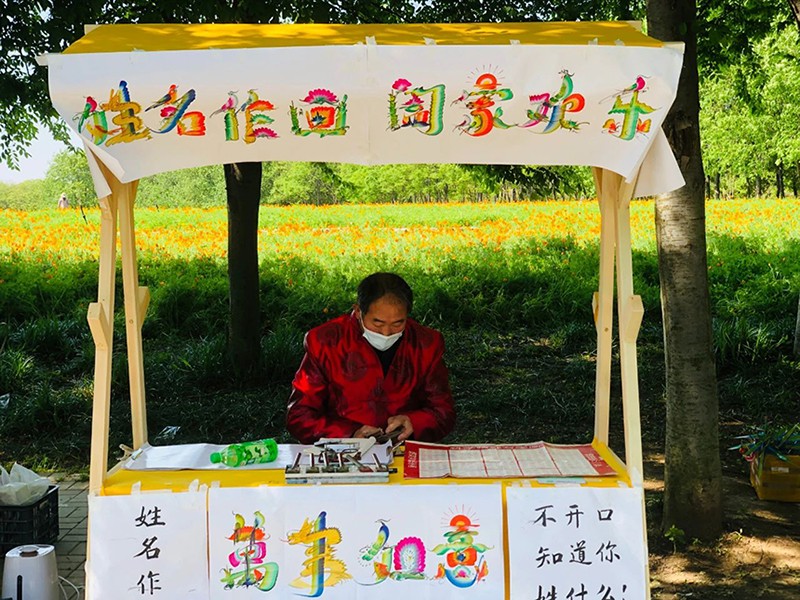 姓名作画 阖家欢乐
姓
名
作
萬事如意
不开口
知道你
姓什么!